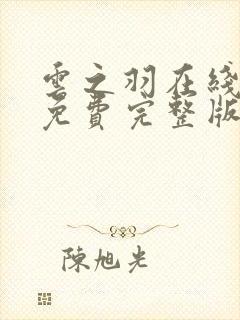 雲之羽在綫
免費完整版
陳旭光